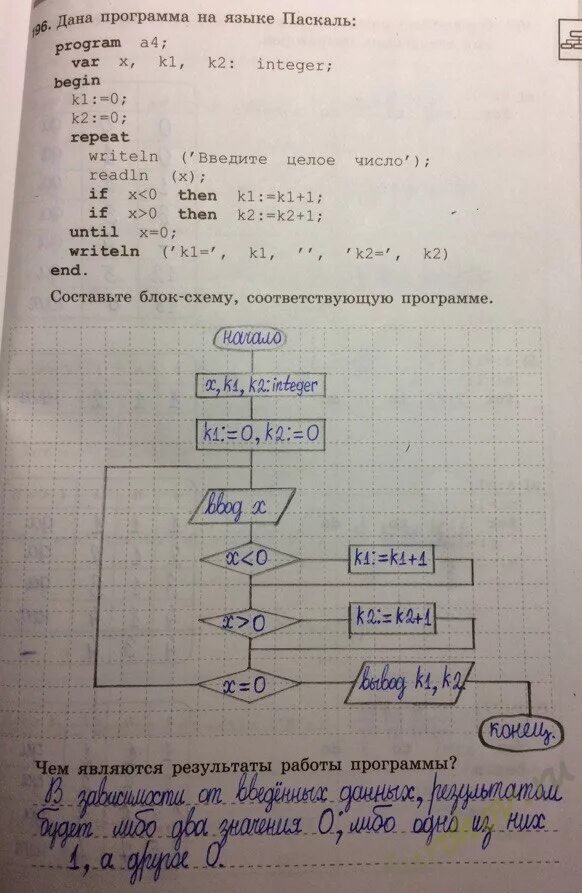 196. Дана программа на языке Паскаль:
program a4;
var x, k1, k2: integer;
begin
k1:=0;
k2:=0;
repeat
writeln ('Введите целое число');
readln (x);
if x<0 then k1:=k1+1;
if x>0 then k2:=k2+1;
until x=0;
writeln ('k1=', k1, '', 'k2=', k2)
end.
Составьте блок-схему, соответствующую программе.
начало
x, k1, k2: integer
k1:=0, k2:=0
ввод x
x<0
k1:=k1+1
x>0
k2:=k2+1
x=0
вывод k1, k2
конец.
Чем являются результаты работы программы?
В зависимости от введённых данных, результатом
будет либо два значения 0; либо одно из них
1, а другое 0.